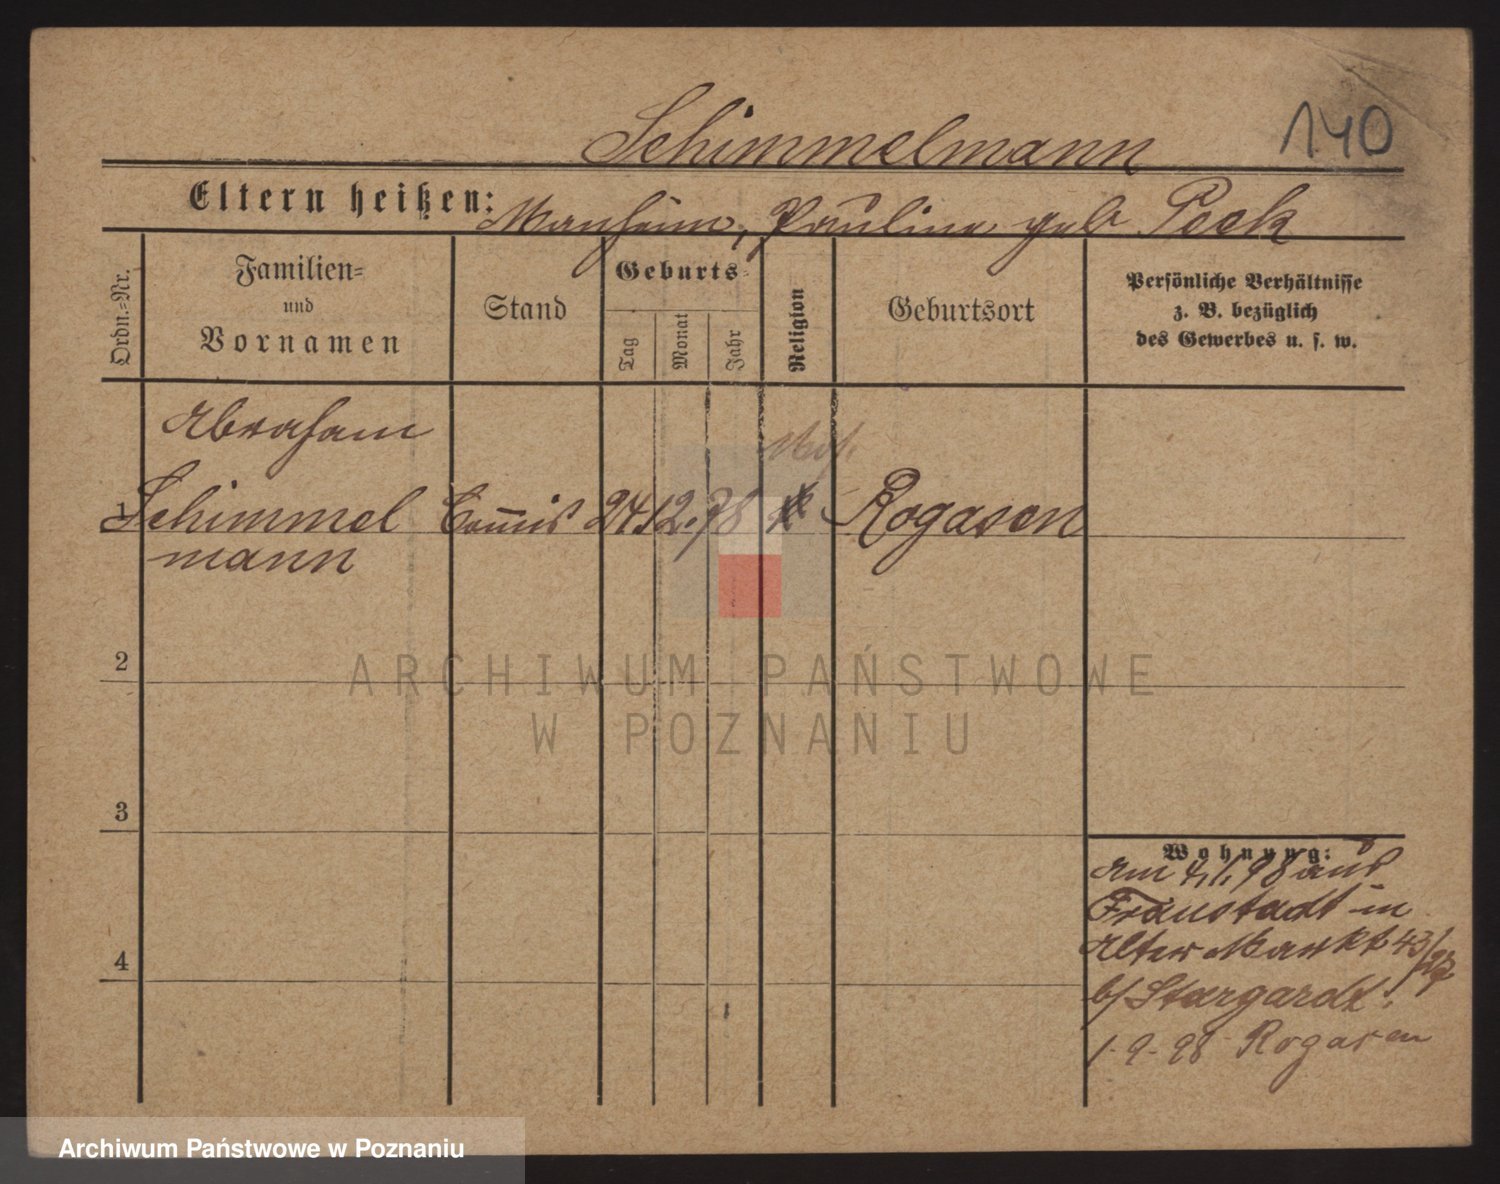 Schimmelmann
140
Eltern heißen: Manheim, Pauline geb Peek
Ordn.=Nr.
Familien=
und
Vornamen
Stand
Geburts=
Tag
Monat
Jahr
Religion
Geburtsort
Persönliche Verhältnisse
z. B. bezüglich
des Gewerbes u. s. w.
Abraham
Mos.
1 Schimmel Commis 24 12. 78 Rogasen
mann
2
3
4
Wohnung:
Am 4.1.98 aus
Fraustadt in
Alter Markt 43/
b/ Stargardt.
1-9-98 Rogasen
ARCHIWUM PAŃSTWOWE
W POZNANIU
Archiwum Państwowe w Poznaniu